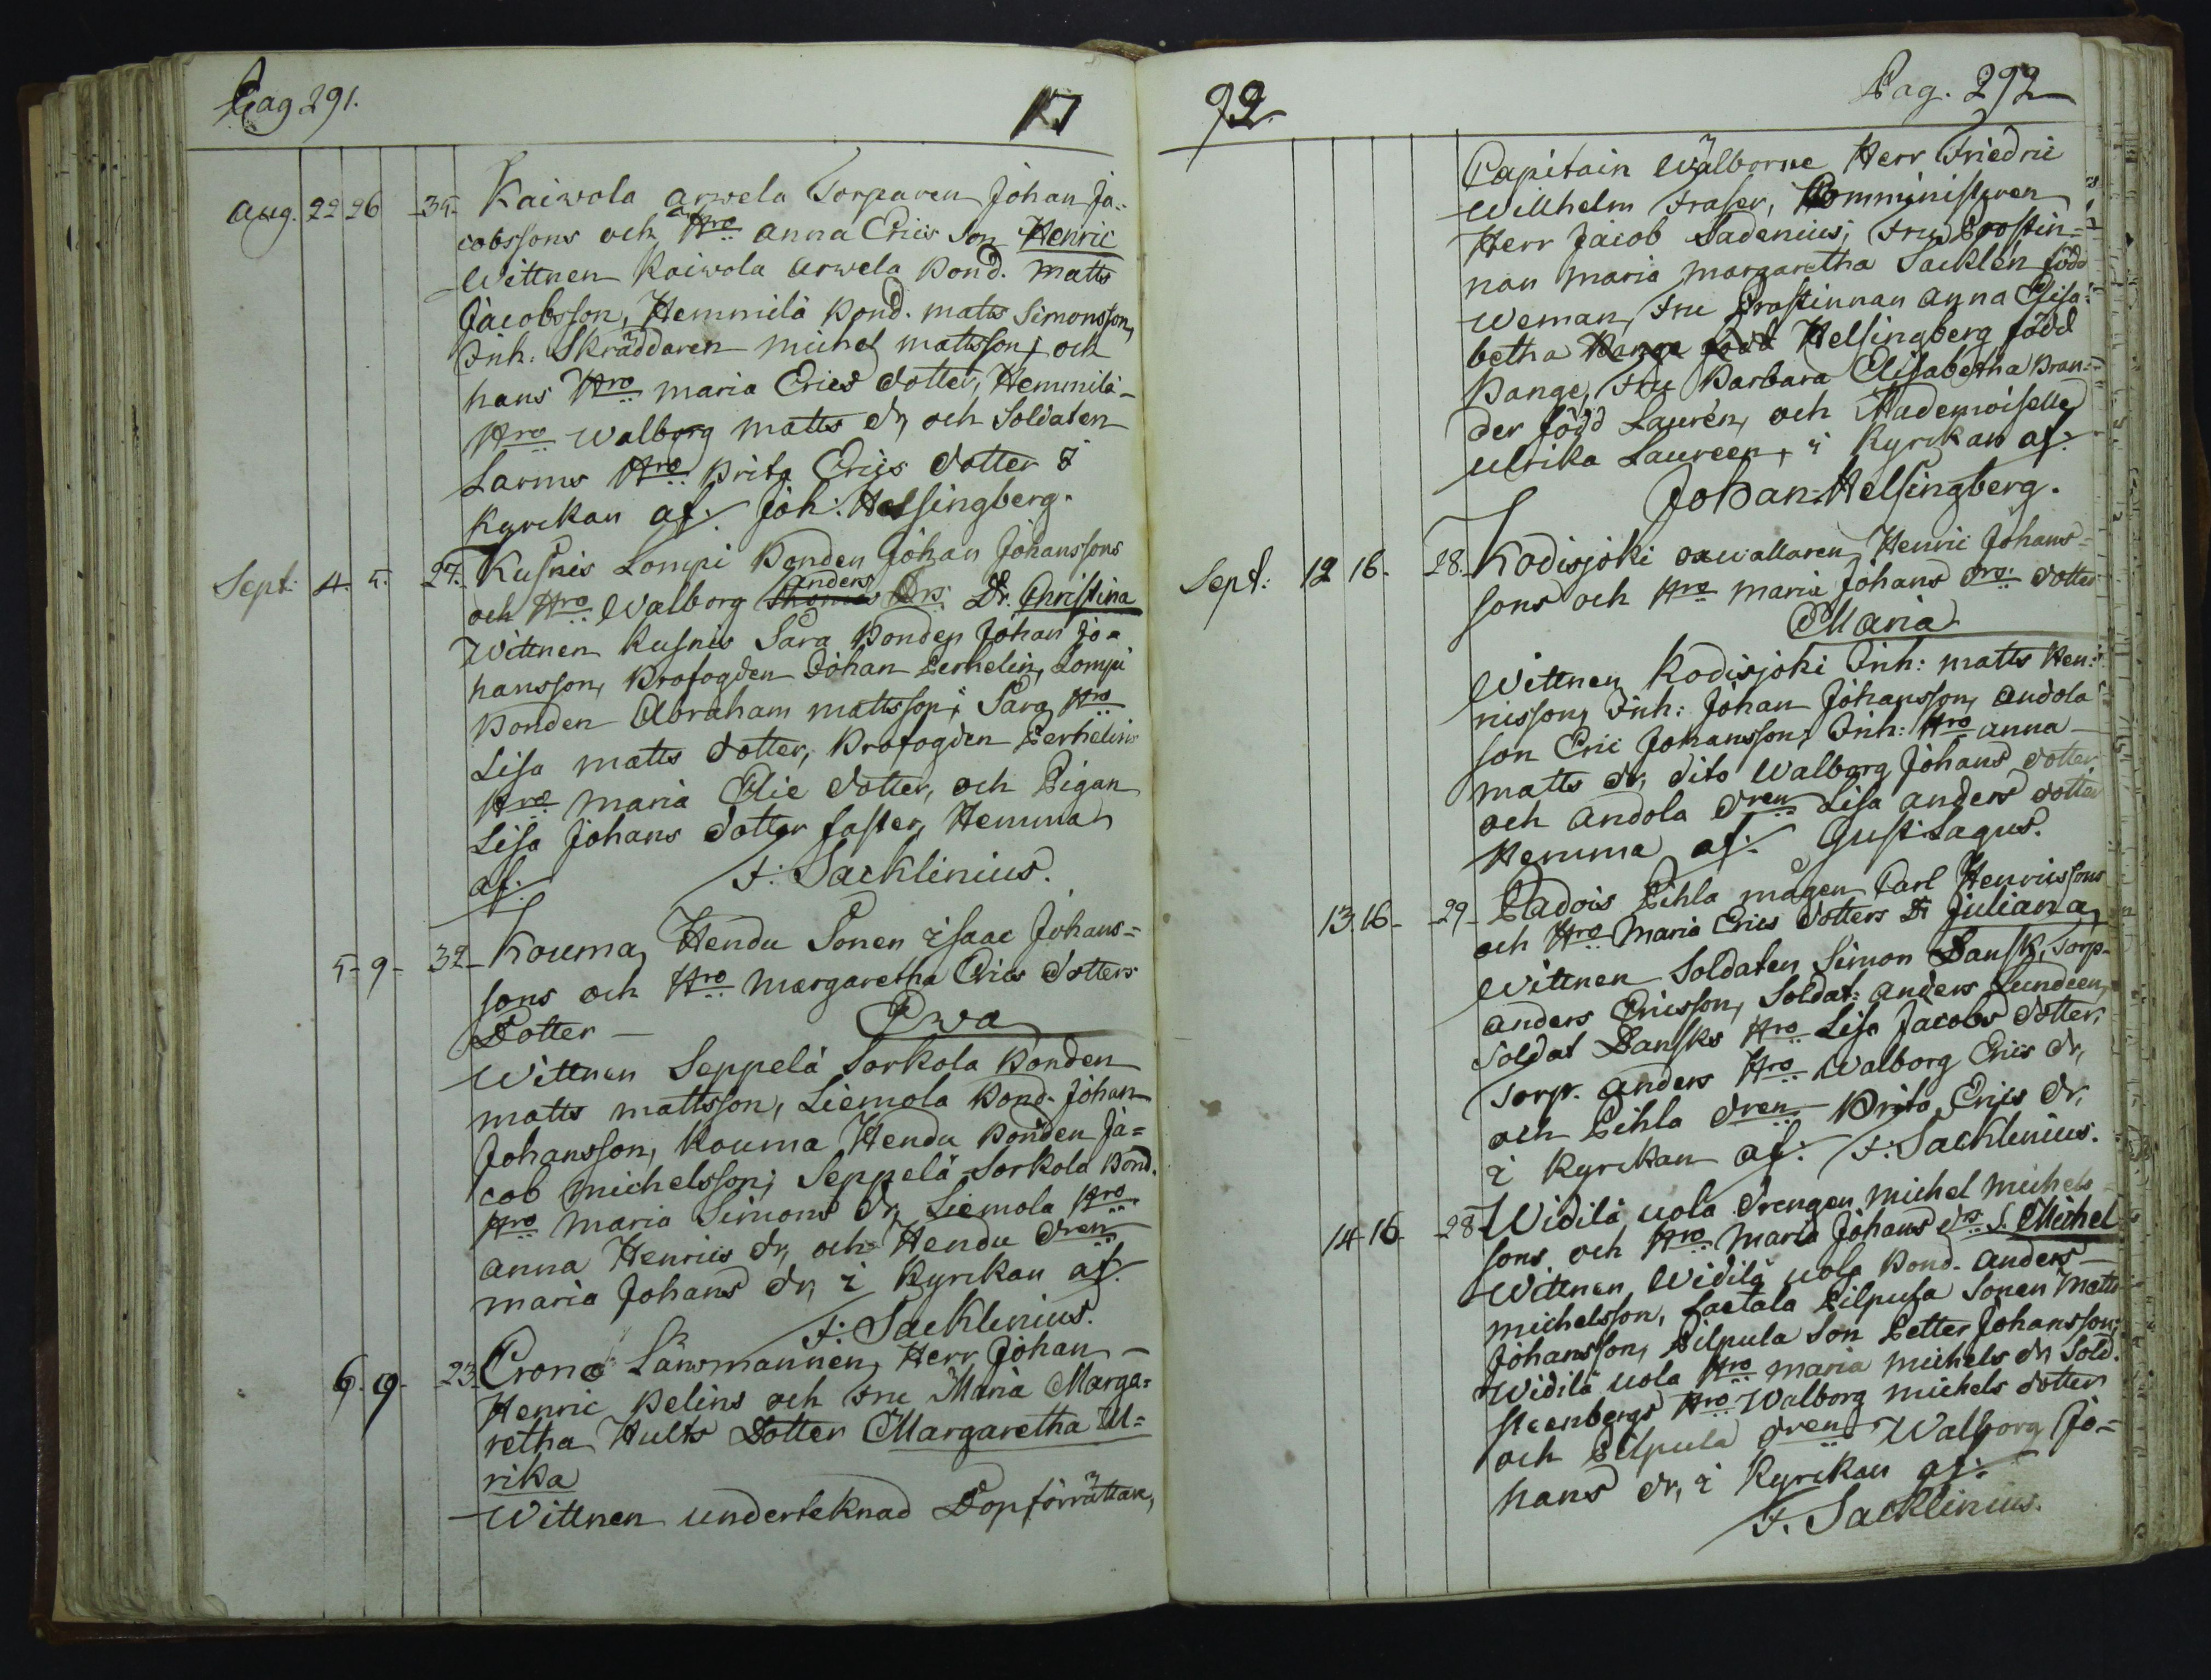 Pag 291.
17
Aug. 22 26 -35- Kaiwola arwela Torparen Johan Ja-
cobssons och Hro anna Erics Son Henric
Wittnen Kaiwola arwela Bond. Matts
Jacobsson, Hemmilä Bond. matts Simonsson,
Inh: Skräddaren michel mattsson; och
hans Hro maria Erics dotter, Hemmilä
Hro Walborg matts dr, och Soldaten
Larms Hro Brita Erics dotter i
Kyrckan af. Joh: Helsingberg.
Sept: 4. 5. -27.- Kusnis Lompi Bonden Johan Johanssons
och Hro Walborg anders Drs Dr. Christina
Wittnen Kusnis Sara Bonden Johan Jo-
hansson, Brofogden Johan Perhelin, Lompi
Bonden Abraham mattsson; Sara Hro
Lisa matts dotter, Brofogden Perhelins
Hro maria Elie dotter, och Pigan
Lisa Johans dotter faster, Hemma
af. F: Sacklinius.
5- 9- 32- Kouma Hendu Sonen isaac Johans=
sons och Hro Margaretha Erics dotters
Dotter - Ewa
Wittnen Seppelä Sorkola Bonden
matts mattsson, Liemola Bond. Johan
Johansson, Kouma Hendu Bonden Ja=
cob michelsson; Seppelä Sorkola Bond.
Hro maria Simons dr, Liemola Hro
anna Henrics dr, och Hendu dren
maria Johans dr, i Kyrckan af.
F: Sacklinius.
6- 9- -23- Crono Länsmannen, Herr Johan
Henric Pelins och Fru Maria Marga=
retha Hults Dotter Margaretha Ul=
rika
Wittnen underteknad Dopförrättare,
92.
Pag. 292
Capitain Wälborne Herr Friedric
Willhelm Fraser, Comministern
Herr Jacob Sadenius; Fru Prostin=
nan maria margaretha Sacklen född
Weman, Fru Prostinnan Anna Elisa=
betha Helsingberg född
Bange, Fru Barbara Elisabetha Bran=
der född Lauren, och Mademoiselle
Ulrika Laureen, i Kyrckan af.
Johan Helsingberg.
Sept: 12 16. 28. Kodisjoki Henric Johans=
sons och Hro maria Johans drs dotter
Maria
Wittnen Kodisjoki Inh: matts Hen=
ricsson, Inh: Johan Johansson, andola
son Eric Johansson; Inh: Hro anna
matts dr, dito Walborg Johans dotter
och andola dren Lisa anders dotter
Hemma af. Gust: Lagus.
13. 16- -29- Pihla mågen Carl Henricssons
och Hro Maria Erics dotters Dr Juliana
Wittnen Soldaten Simon Dansk, Torp.
anders Ericsson, Soldat: anders Lundeen,
Soldat Dansks Hro Lisa Jacobs dotter,
Torp. anders Hro Walborg Erics dr,
och Pihla dren Brita Erics dr,
i Kyrckan af. F: Sacklinius.
14- 16- -28 Widilä uola drengen michel michels
sons och Hro maria Johans drs S. Michel
Wittnen Widilä uola Bond. anders
michelsson, Laetala Pilpula Sonen Matts
Johansson, Pilpula Son Petter Johansson;
Widilä uola Hro maria michels dr, Sold.
Steenbergs Hro Walborg michels dotter
och Pilpula dren Walborg Jo=
hans dr, i Kyrckan af.
F. Sacklinius.